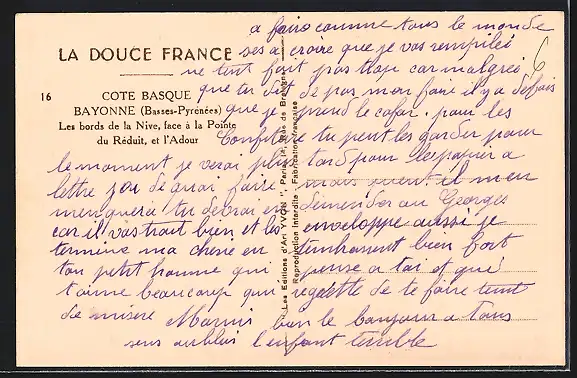 a faire comme tous le monde
LA DOUCE FRANCE
ses a croire que je vas rempilei
ne tout fait pas trop car malgrei 6
16
COTE BASQUE
que tu dit de pas mon faire il y a desfois
BAYONNE (Basses-Pyrénées)
que je prend le cafar. pour les
Les bords de la Nive, face à la Pointe
du Réduit, et l'Adour
Confiture tu peut les garder pour
le moment je verai plus tard pour le papier a
lettre jai de quoi faire mais avent il men
menquera tu devrai en demender au Georges
car il vas trait bien et les enveloppe aussi je
termine ma cherie en tembrassent bien fort
ton petit homme qui pense a toi et qui
t'aime beaucoup qui regrette de te faire tent
de misere Mamis bien le bonjour a tous
sens oublier l'enfant terrible
Les Editions d'Art YVON", Paris, Rue de Bretagne
Reproduction Interdite - Fabrication Française